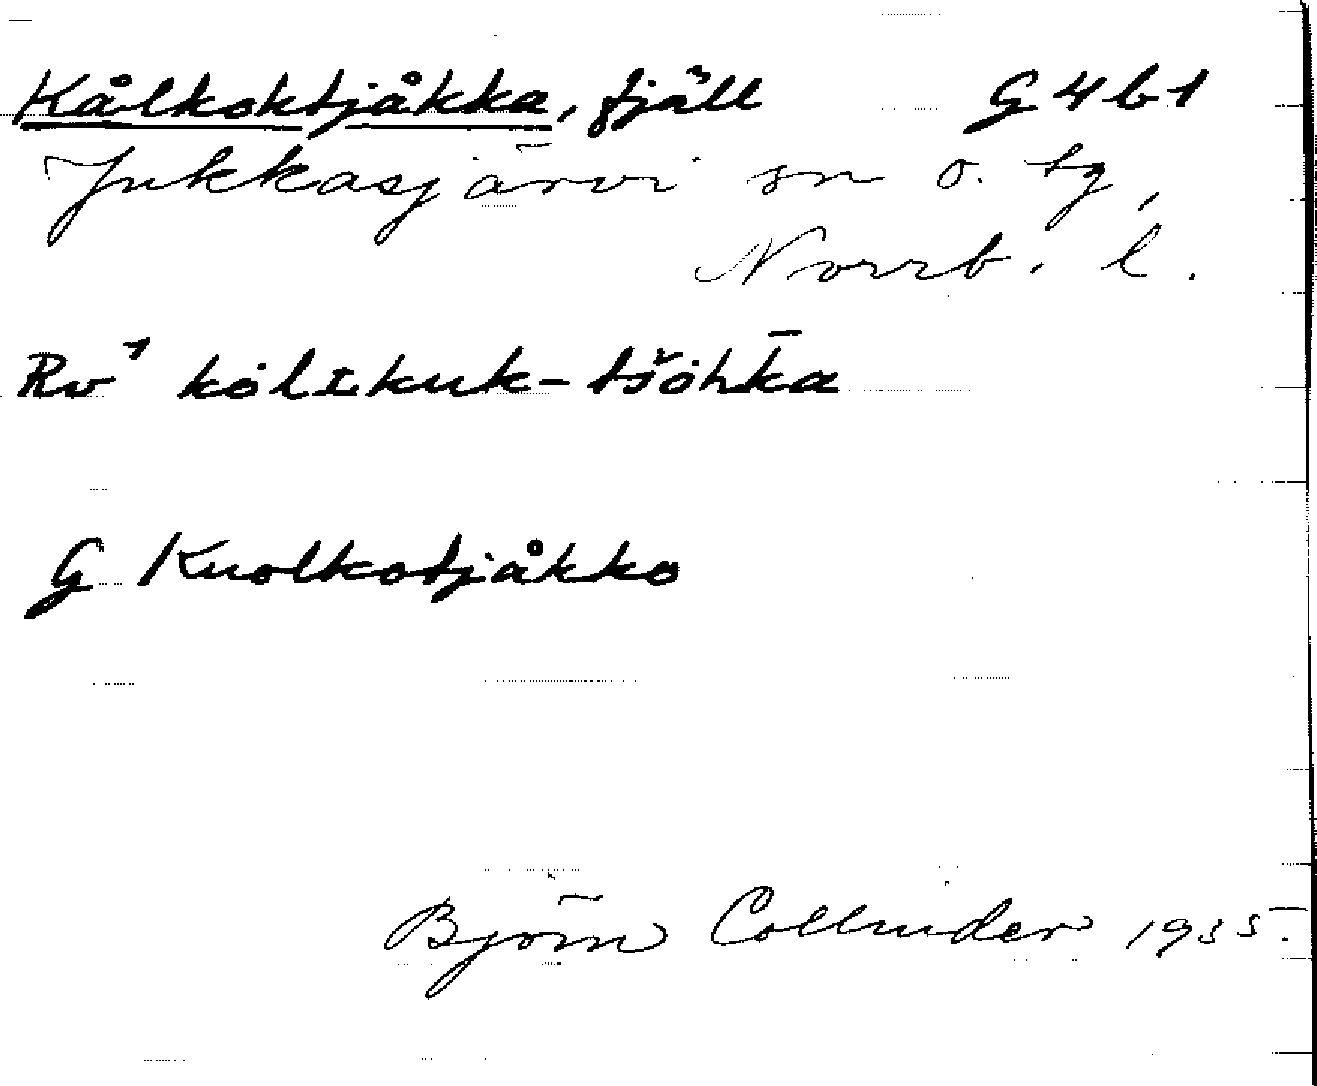 Kålkoktjåkka, fjäll G 4 b 1
Jukkasjärvi sn o. tg,
Norrb. l.
Rv¹ kȯlɪkuk-tšȯhk̄a
G Kuolkotjåkko
Björn Collinder 1935.